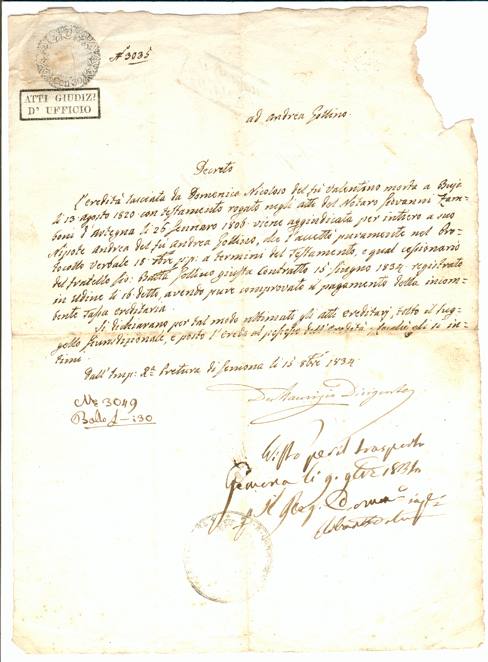 N° 3035
ATTI GIUDIZ!
D' UFFICIO
ad Andrea Gollino.
Decreto
L'eredità lasciata da Domenico Nicoloso del fù Valentino morto a Buja
li 13 agosto 1820 con testamento rogato negli atti del Notaro Giovanni Zam-
boni d'Osegna li 26 Gennaro 1806 viene aggiudicata per intiero a suo
Nipote Andrea del fù Andrea Gollino, che l'accettò puramente nel Pro-
tocollo Verbale 18 p.p. a termini del Testamento, e qual cessionario
del fratello Gio: Batta Gollino giusta Contratto 15 Giugno 1834 registrato
in Udine li 16 detto, avendo pure comprovato il pagamento della incom-
bente tassa ereditaria.
Si dichiarano per tal modo ultimati gli atti ereditarj, tolto il sug-
gello Giurisdizionale, e posto l'erede al possesso dell'eredità, locchè gli si in-
timi.
Dall' Imp: R.a Pretura di Gemona li 15 8bre 1834.
De Dirigente
N° 3049
Bollo L - :30
Visto per il trasporto
Gemona li 9 9bre 1834
Il